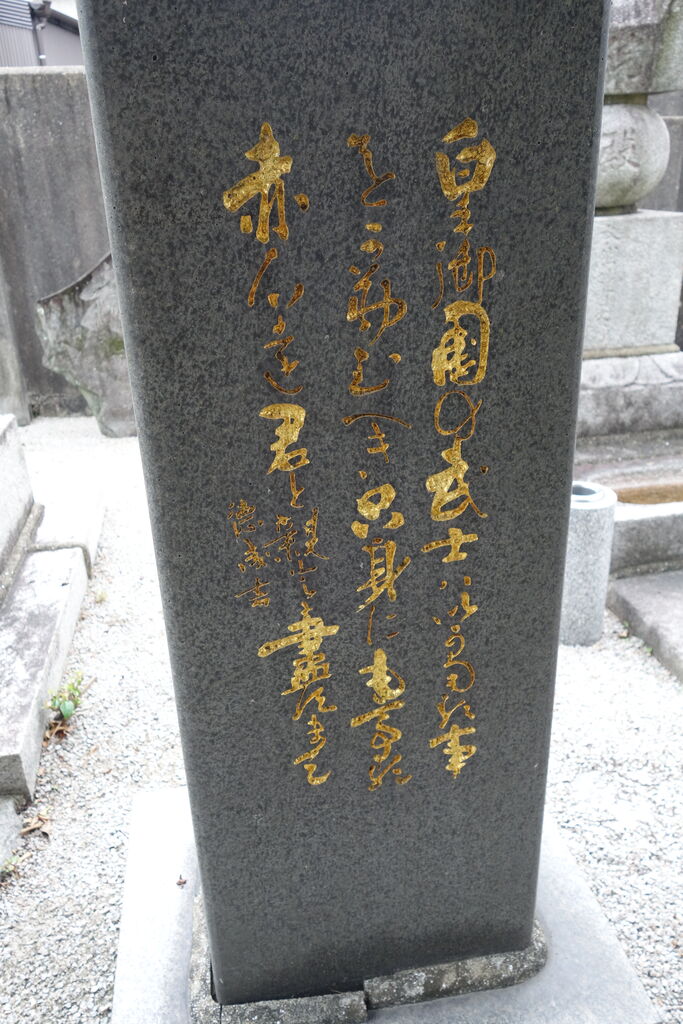 皇御國の武士はいかなる事
をか勤むへき只身にもてる
赤心を君と親とに盡すまて
徳成